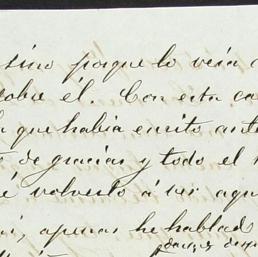 sino porque lo veía
sobre él. Con esta ca
que había escrito ante
de gracias y todo el
é volverlo á ver aqu
apenas he hablado